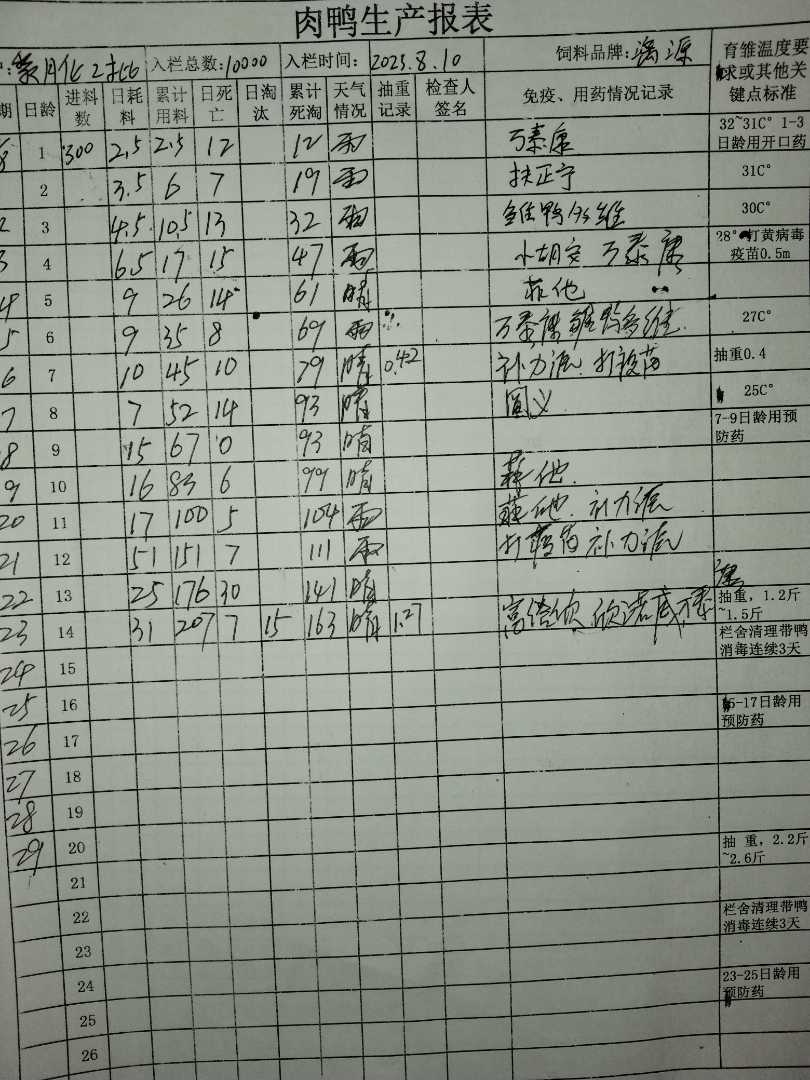 肉鸭生产报表
入栏总数:10000 入栏时间: 2025.8.10 饲料品牌: 育雏温度要求或其他关键点标准
期 日龄 进料数 日耗料 累计用料 日死亡 日淘汰 累计死淘 天气情况 抽重记录 检查人签名 免疫、用药情况记录
1 300 2.5 2.5 12 12 雨 万泰康 32~31C° 1-3日龄用开口药
2 3.5 6 7 19 雨 扶正宁 31C°
3 4.5 10.5 13 32 雨 30C°
4 6.5 17 15 47 雨 万泰康 28° 打黄病毒疫苗0.5m
5 9 26 14 61 晴 菲他
15 6 9 35 8 69 雨 万泰康 27C°
16 7 10 45 10 79 晴 0.42 补力源. 打疫苗 抽重0.4
17 8 7 52 14 93 晴 25C°
18 9 15 67 0 93 晴 7-9日龄用预防药
19 10 16 83 6 99 晴 菲他.
20 11 17 100 5 104 雨 菲他. 补力源
21 12 51 151 7 111 雨 补力源
22 13 25 176 30 141 晴 抽重，1.2斤~1.5斤
23 14 31 207 7 15 163 晴 1.27 栏舍清理带鸭消毒连续3天
24 15
25 16 15-17日龄用预防药
26 17
27 18
28 19
29 20 抽 重，2.2斤~2.6斤
21
22 栏舍清理带鸭消毒连续3天
23
24 23-25日龄用预防药
25
26